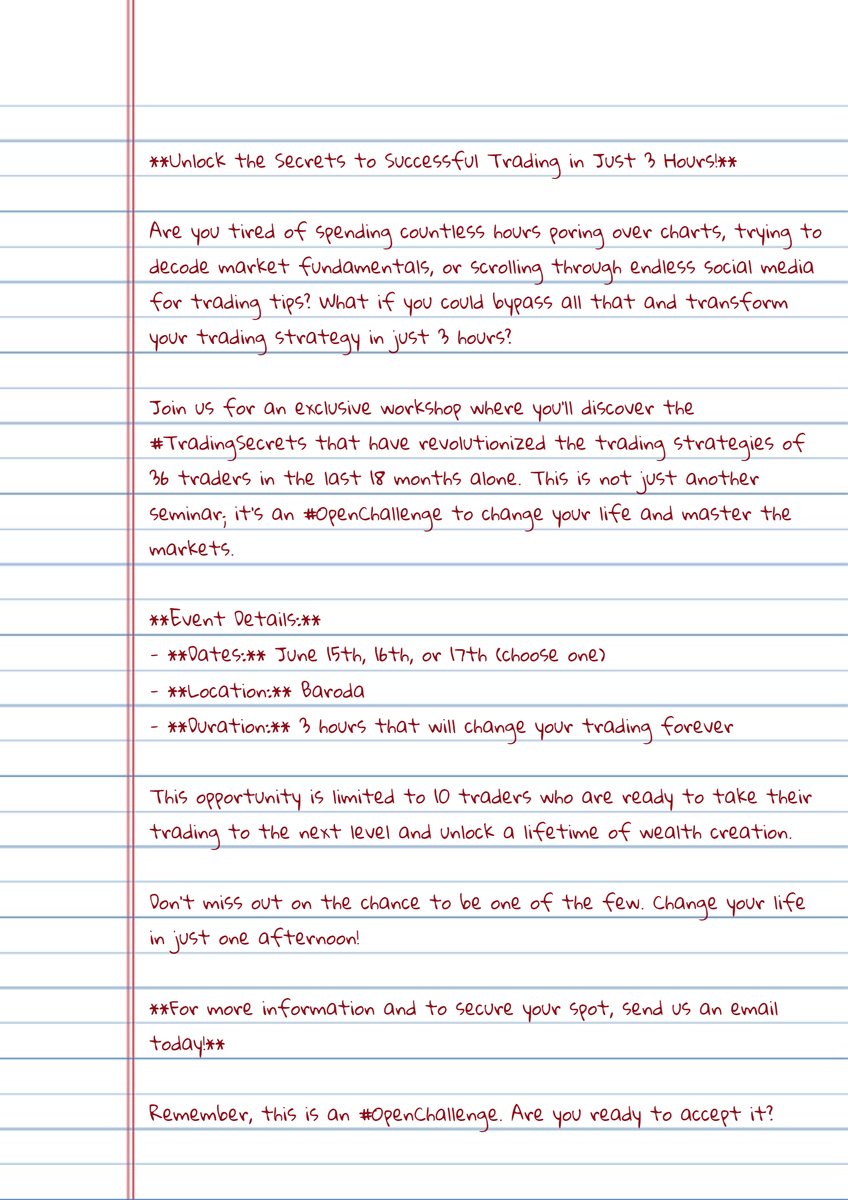 **Unlock the Secrets to Successful Trading in Just 3 Hours!**
Are you tired of spending countless hours poring over charts, trying to
decode market fundamentals, or scrolling through endless social media
for trading tips? What if you could bypass all that and transform
your trading strategy in just 3 hours?
Join us for an exclusive workshop where you'll discover the
#TradingSecrets that have revolutionized the trading strategies of
36 traders in the last 18 months alone. This is not just another
seminar; it's an #OpenChallenge to change your life and master the
markets.
**Event Details:**
- **Dates:** June 15th, 16th, or 17th (choose one)
- **Location:** Baroda
- **Duration:** 3 hours that will change your trading forever
This opportunity is limited to 10 traders who are ready to take their
trading to the next level and unlock a lifetime of wealth creation.
Don't miss out on the chance to be one of the few. Change your life
in just one afternoon!
**For more information and to secure your spot, send us an email
today!**
Remember, this is an #OpenChallenge. Are you ready to accept it?